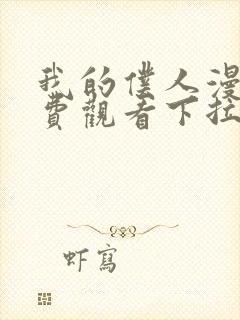 我的僕人漫
費觀看下拉
虾寫